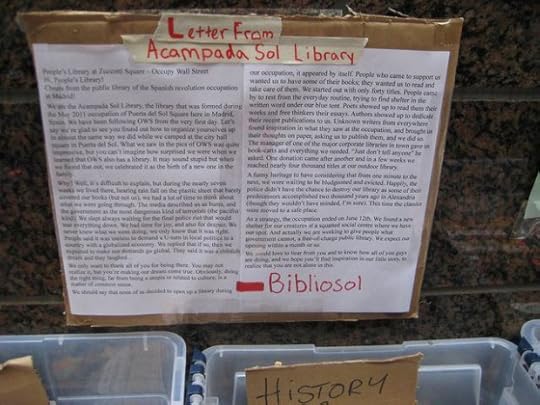 Letter From
Acampada Sol Library
People's Library at Zuccotti Square - Occupy Wall Street
Hi, People's Library!
Cheers from the public library of the Spanish revolution occupation
in Madrid!
We are the Acampada Sol Library, the library that was formed during
the May 2011 occupation of Puerta del Sol Square here in Madrid,
Spain. We have been following OWS from the very first day. Let's
say we're glad to see you found out how to organize yourselves up
in almost the same way we did while we camped at the city hall
square in Puerta del Sol. What we saw in the pics of OWS was quite
impressive, but you can't imagine how surprised we were when we
learned that OWS also has a library. It may sound stupid but when
we found that out, we celebrated it as the birth of a new one in the
family.
Why? Well, it's difficult to explain, but during the nearly seven
weeks we lived there, hearing rain fall on the plastic sheet that barely
covered our books (but not us), we had a lot of time to think about
what we were going through. The media described us as bums, and
the government as the most dangerous kind of terrorists (the pacifist
kind). We slept always waiting for the final police riot that would
tear everything down. We had time for joy, and also for despair. We
never knew what we were doing, we only knew that it was right.
People said it was useless to demand a U-turn in local politics in a
country with a globalized economy. We replied that if so, then we
expected to make our demands go global. They said it was a
dream and they laughed.
We only want to thank all of you for being there. You may not
realize it, but you're making our dream come true. Obviously, doing
the right thing, far from being a utopia or related to culture, is a
matter of common sense.
We should say that none of us decided to open up a library during
our occupation, it appeared by itself. People who came to support us
wanted us to have some of their books; they wanted us to read and
take care of them. We started out with only forty titles. People came
by to rest from the everyday routine, trying to find shelter in the
written word under our blue tent. Poets showed up to read them their
works and free thinkers their essays. Authors showed up to dedicate
their recent publications to us. Unknown writers from everywhere
found inspiration in what they saw at the occupation, and brought us
their thoughts on paper, asking us to publish them, and we did so.
The manager of one of the major corporate libraries in town gave us
book-carts and everything we needed. "Just don't tell anyone" he
asked. One donation came after another and in a few weeks we
reached nearly four thousand titles at our outdoor library.
A funny heritage to have considering that from one minute to the
next, we were waiting to be bludgeoned and evicted. Happily, the
police didn't have the chance to destroy our library as some of their
predecessors accomplished two thousand years ago in Alexandria
(though they wouldn't have minded, I'm sure). This time the classics
were moved to a safe place.
As a strategy, the occupation ended on June 12th. We found a new
shelter for our creatures of a squatted social center where we have
our spot. And actually we are working to give people what
government cannot, a free-of-charge public library. We expect our
opening within a month or so.
We would love to hear from you and to know how all of you guys
are doing, and we hope you'll find inspiration in our little story, to
realize that you are not alone in this.
Bibliosol
HISTORY